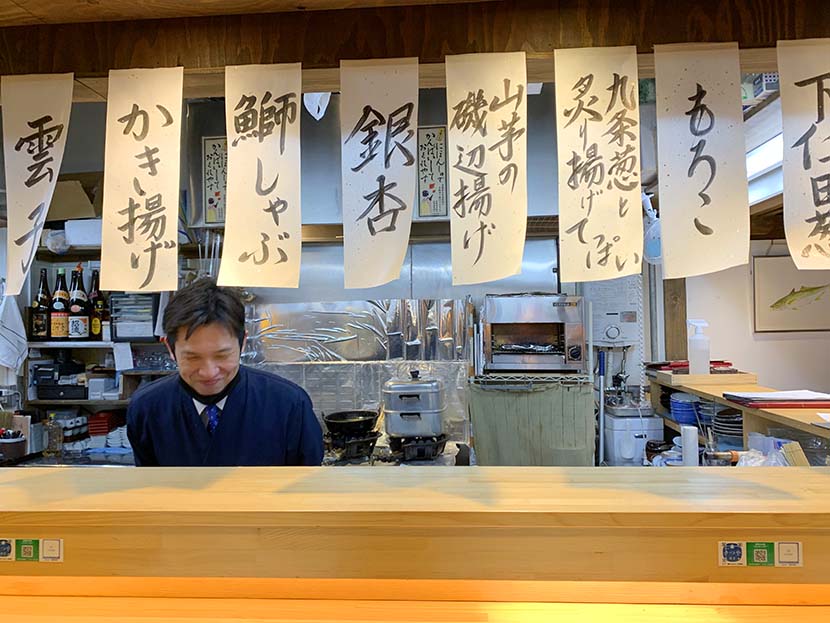 雲子
かき揚げ
鰤しゃぶ
銀杏
山芋の
磯辺揚げ
九条葱と
炙り揚げてっぱい
もろこ
下仁田葱